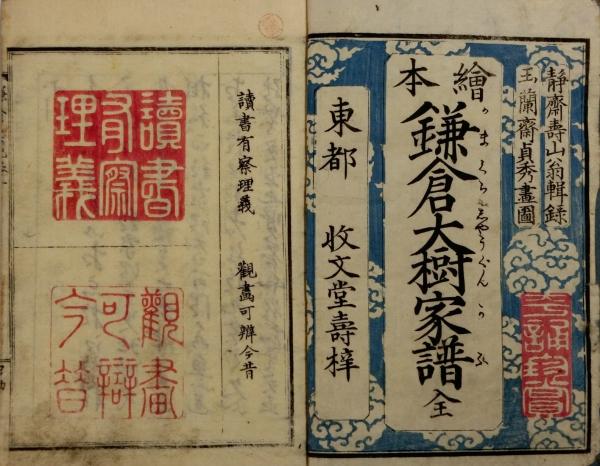 靜齋壽山翁輯録
玉蘭齋貞秀畫圖
繪本
鎌倉大樹家譜 全
かまくら志やうぐんかふ
東都 收文堂壽梓
讀書有察理義 觀畫可辨今昔
讀書
有察
理義
觀畫
可辯
今昔